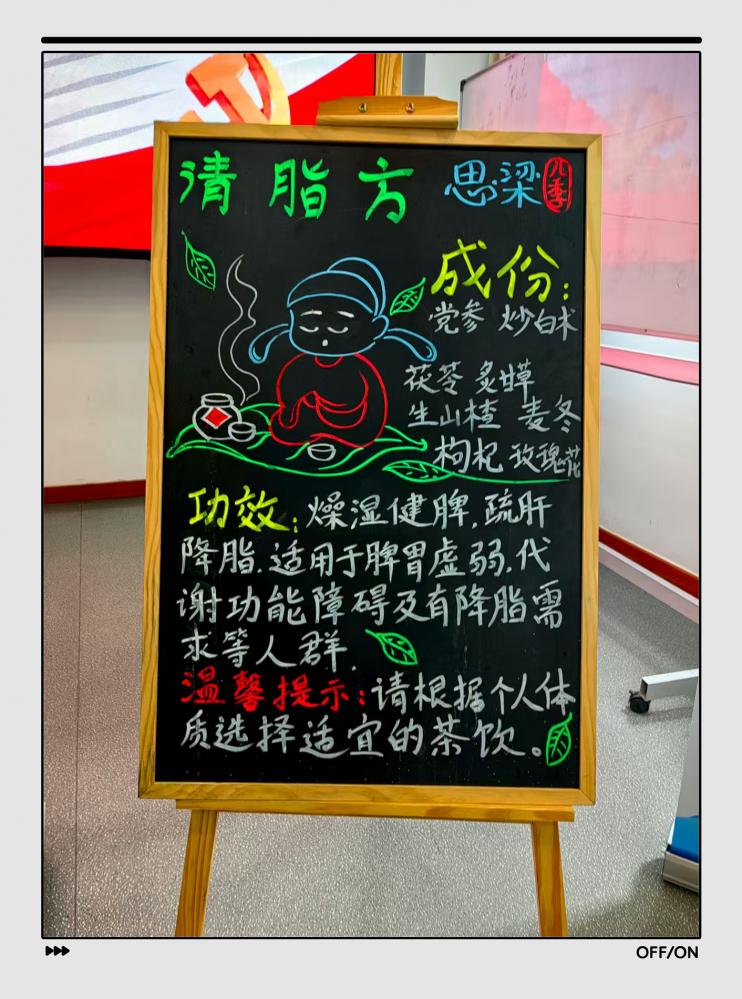 清脂方 思梁 八季
成份:
党参 炒白术
茯苓 炙甘草
生山楂 麦冬
枸杞 玫瑰花
功效:燥湿健脾.疏肝
降脂.适用于脾胃虚弱.代
谢功能障碍及有降脂需
求等人群.
温馨提示:请根据个人体
质选择适宜的茶饮。
OFF/ON